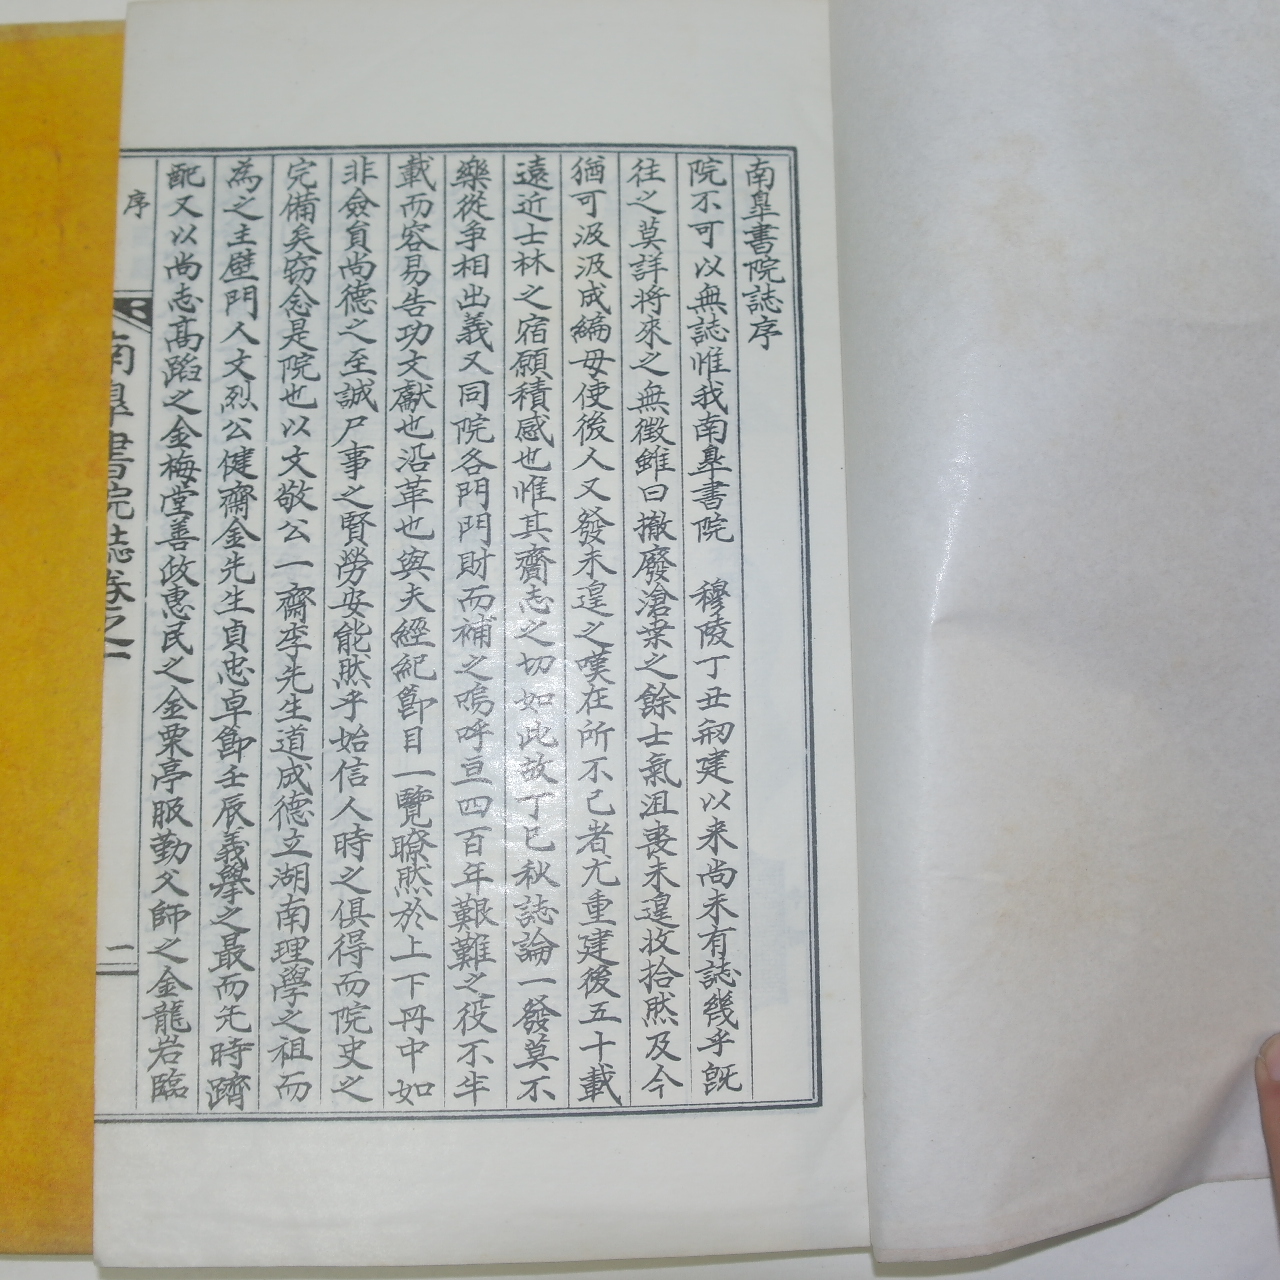 南臯書院誌序
院不可以無誌惟我南臯書院 穆陵丁丑刱建以来尚未有誌幾乎既
往之莫詳将來之無徵雖曰撤廢滄桒之餘士氣沮喪未遑收拾然及今
猶可汲汲成編毋使後人又發未遑之嘆在所不已者尤重建後五十載
遠近士林之宿願積感也惟其齎志之切如此故丁巳秋誌論一發莫不
樂從争相出義又同院各門門財而補之嗚呼亘四百年艱難之役不半
載而容易告功文獻也沿革也與夫經紀節目一覽瞭然於上下冊中如
非僉員尚德之至誠尸事之賢勞安能然乎始信人時之俱得而院史之
完備矣窃念是院也以文敬公一齋李先生道成德立湖南理學之祖而
為之主壁門人文烈公健齋金先生貞忠卓節壬辰義擧之最而先時躋
配又以尚志髙蹈之金梅堂善政惠民之金栗亭服勤父師之金龍岩臨
序
南臯書院誌卷之一
一